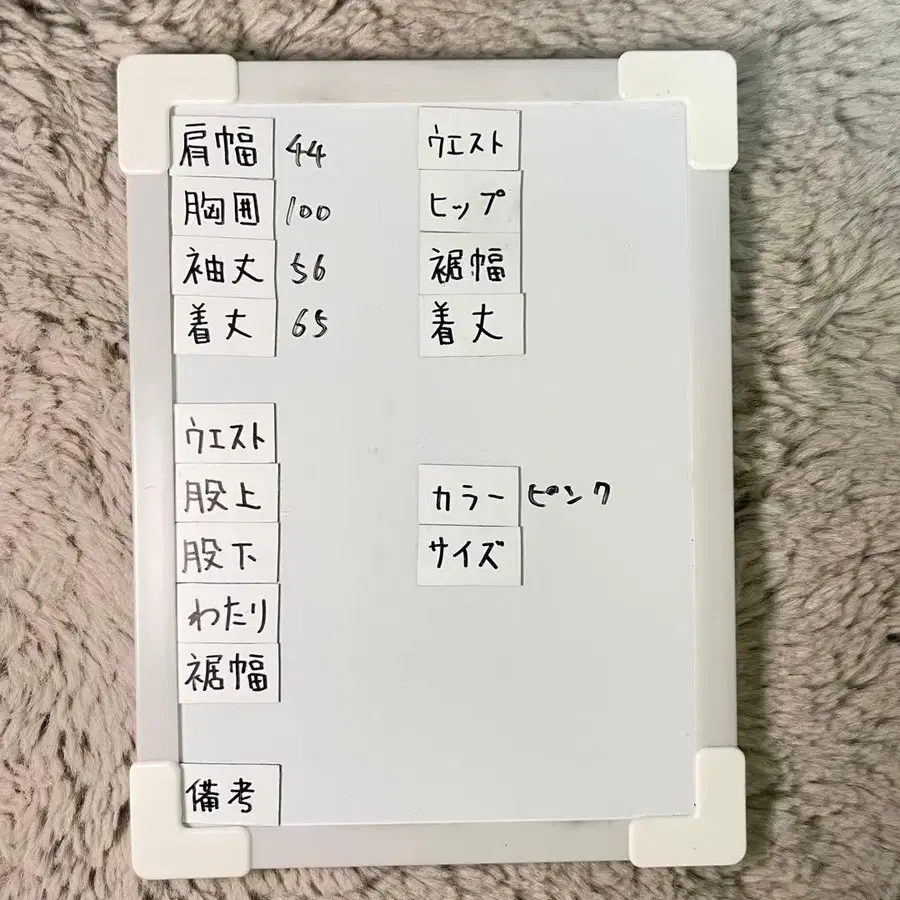 肩幅 44
胸囲 100
袖丈 56
着丈 65
ウエスト
股上
股下
わたり
裾幅
備考
ウエスト
ヒップ
裾幅
着丈
カラー ピンク
サイズ